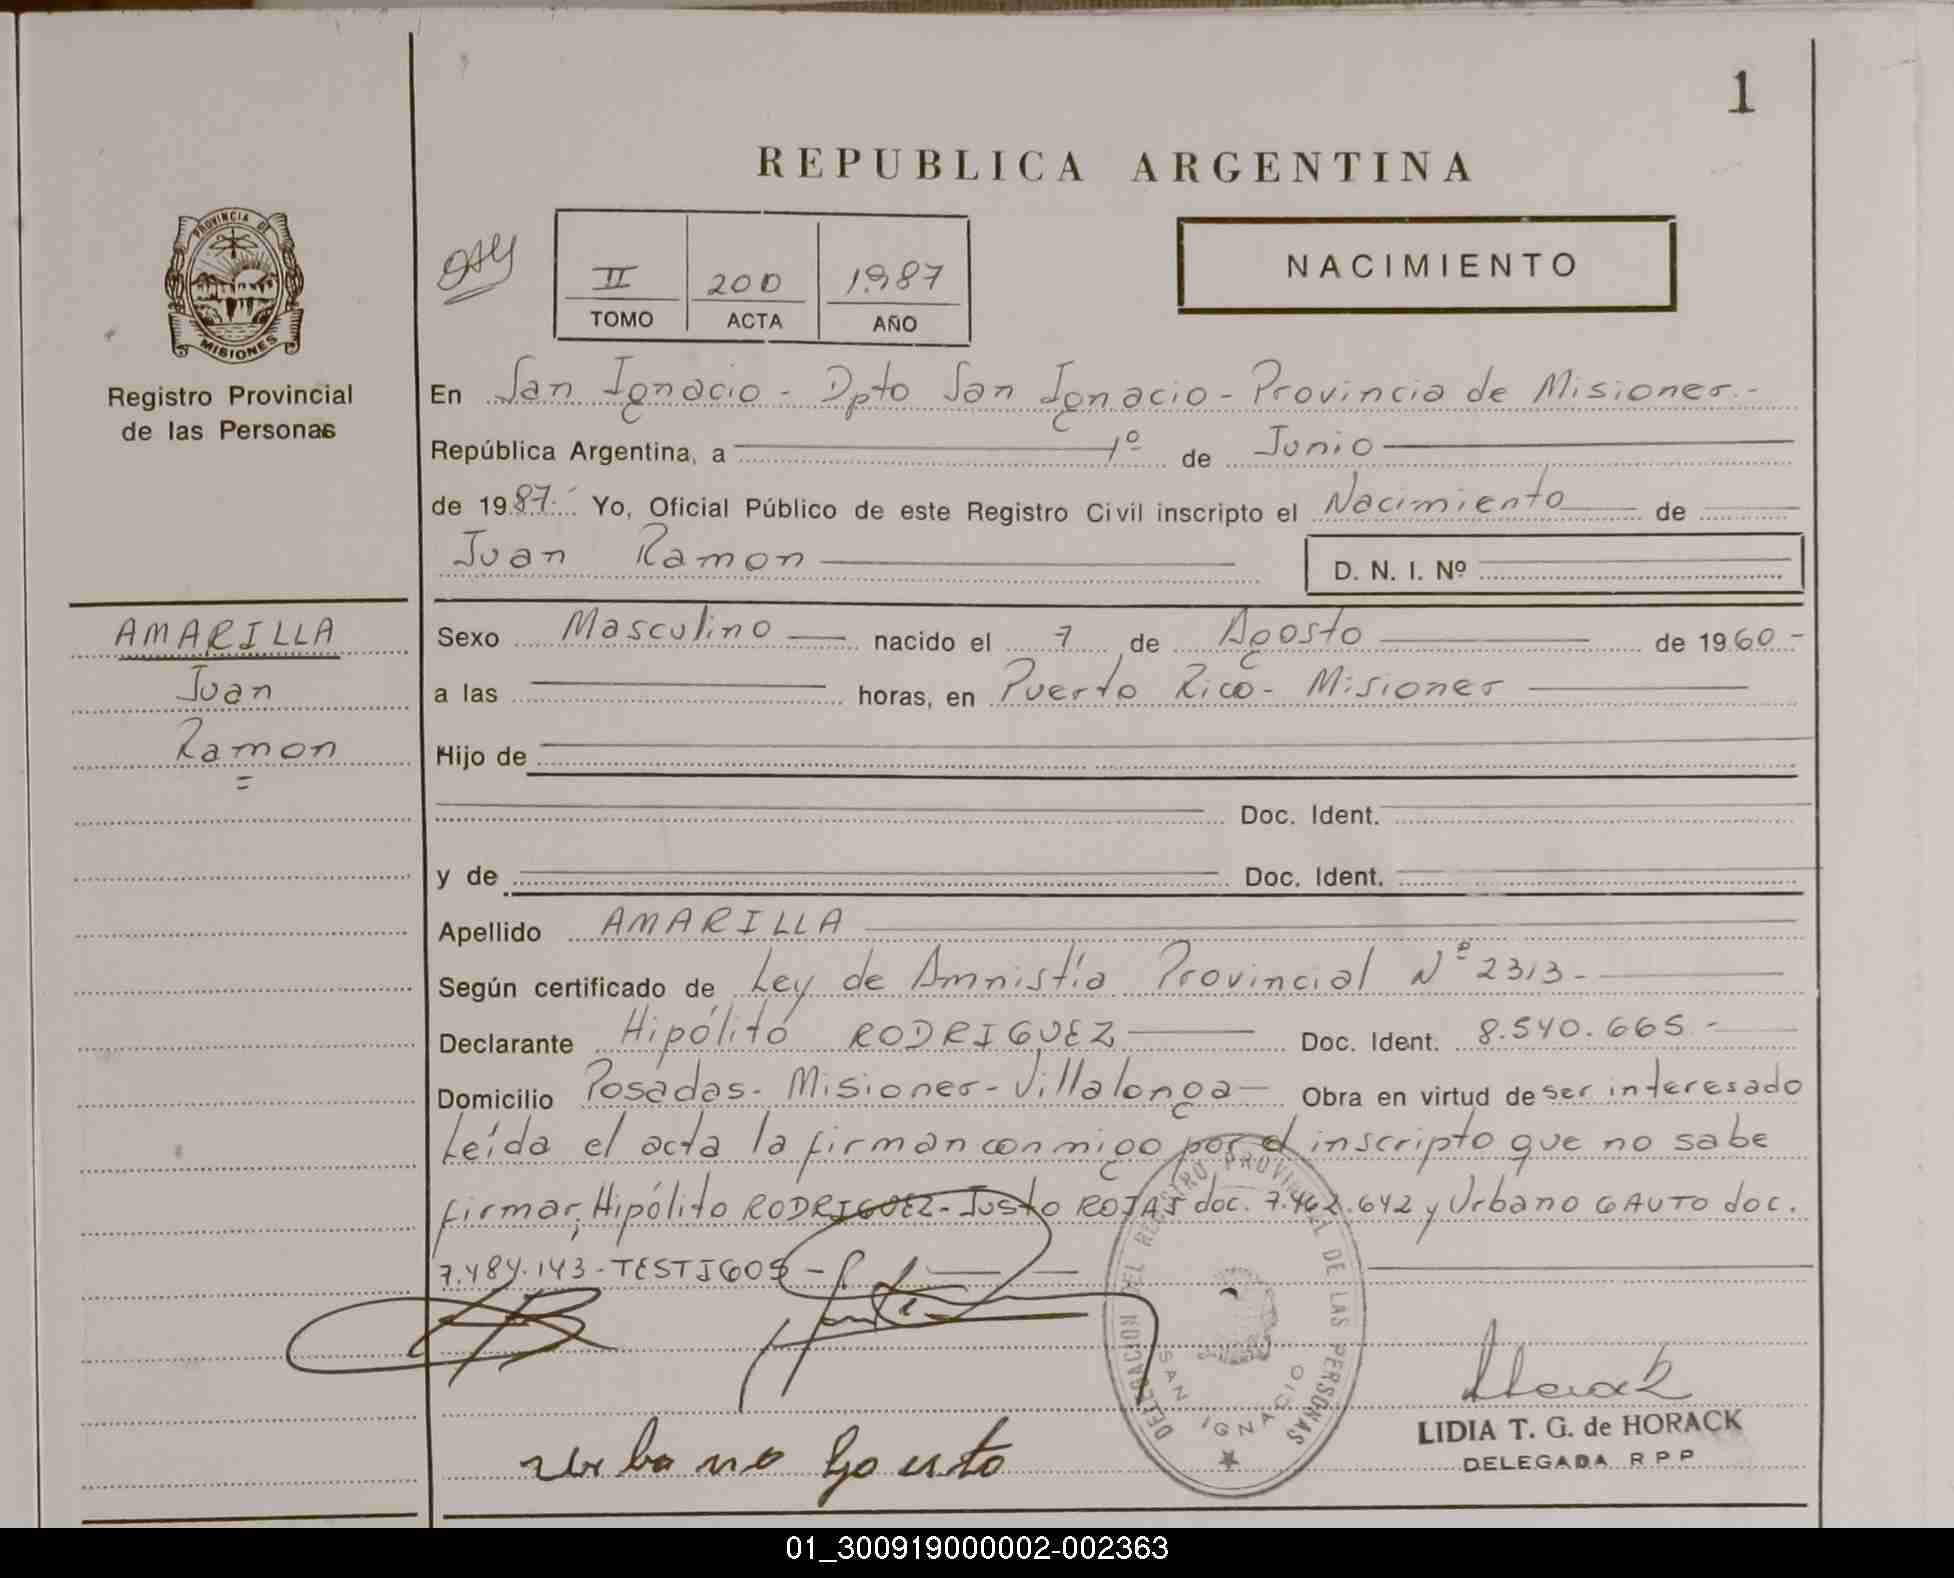 1
REPUBLICA ARGENTINA
PROVINCIA DE
MISIONES
Registro Provincial
de las Personas
II 200 1987
TOMO ACTA AÑO
NACIMIENTO
En San Ignacio - Dpto San Ignacio - Provincia de Misiones.-
República Argentina, a 1º de Junio
de 1987. Yo, Oficial Público de este Registro Civil inscripto el Nacimiento de
Juan Ramon D. N. I. Nº
AMARILLA
Juan
Ramon
=
Sexo Masculino nacido el 7 de Agosto de 1960-
a las horas, en Puerto Rico - Misiones
Hijo de
Doc. Ident.
y de Doc. Ident.
Apellido AMARILLA
Según certificado de Ley de Amnistía Provincial Nº 2313-
Declarante Hipólito RODRIGUEZ Doc. Ident. 8.540.665.-
Domicilio Posadas - Misiones - Villalonga - Obra en virtud de ser interesado
Leída el acta la firman conmigo por el inscripto que no sabe
firmar, Hipólito RODRIGUEZ - Justo ROJAS doc. 7.462.642 y Urbano GAUTO doc.
7.484.143 - TESTIGOS -
DELEGACION DEL REGISTRO PROVINCIAL DE LAS PERSONAS
SAN IGNACIO
Horack
LIDIA T. G. de HORACK
DELEGADA R P P
urbano Gauto
01_300919000002-002363